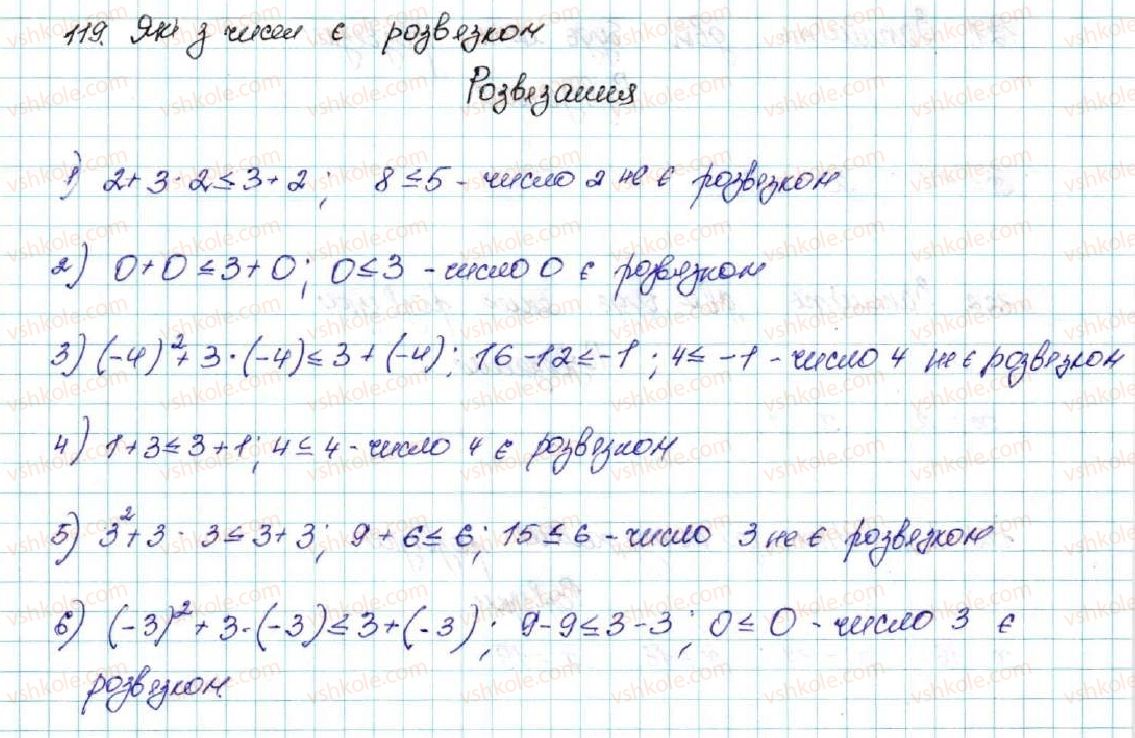 119. Які з чисел є розвязком
Розвязання
1) 2 + 3 · 2 ≤ 3 + 2; 8 ≤ 5 - число 2 не є розвязком
2) 0 + 0 ≤ 3 + 0; 0 ≤ 3 - число 0 є розвязком
3) (-4)² + 3 · (-4) ≤ 3 + (-4); 16 - 12 ≤ -1; 4 ≤ -1 - число 4 не є розвязком
4) 1 + 3 ≤ 3 + 1; 4 ≤ 4 - число 4 є розвязком
5) 3² + 3 · 3 ≤ 3 + 3; 9 + 6 ≤ 6; 15 ≤ 6 - число 3 не є розвязком
6) (-3)² + 3 · (-3) ≤ 3 + (-3); 9 - 9 ≤ 3 - 3; 0 ≤ 0 - число 3 є
розвязком
vshkole.com